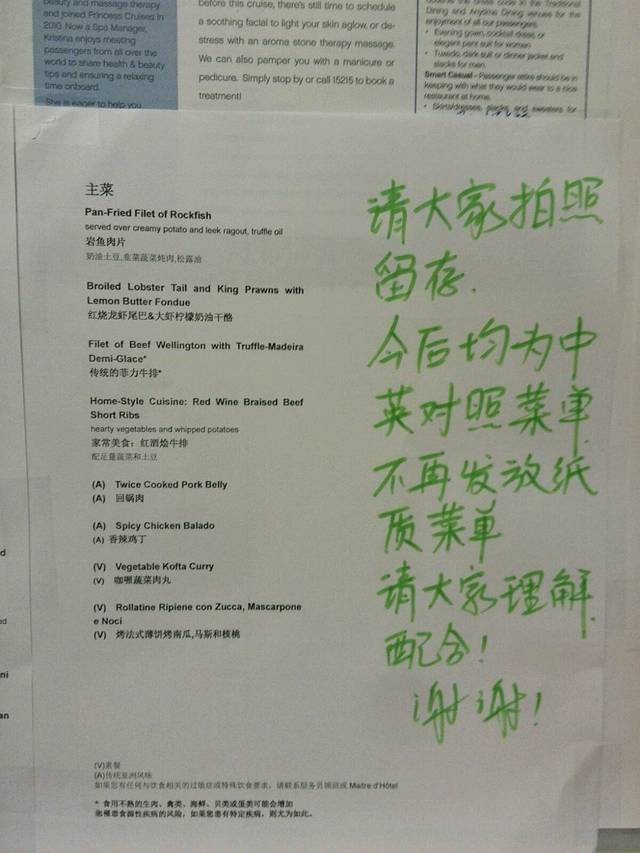 beauty and massage therapy
and joined Princess Cruises in
2010. Now a Spa Manager,
Kristina enjoys meeting
passengers from all over the
world to share health & beauty
tips and ensuring a relaxing
time onboard.
She is eager to help you
before this cruise, there's still time to schedule
a soothing facial to light your skin aglow, or de-
stress with an aroma stone therapy massage.
We can also pamper you with a manicure or
pedicure. Simply stop by or call 15215 to book a
treatment!
Dining and Anytime Dining venues for the
enjoyment of all our passengers.
• Evening gown, cocktail dress or
elegant pant suit for women
• Tuxedo, dark suit or dinner jacket and
slacks for men.
Smart Casual - Passenger attire should be in
keeping with what they would wear to a nice
restaurant at home.
• Skirts/dresses, slacks, and sweaters for
主菜
Pan-Fried Filet of Rockfish
served over creamy potato and leek ragout, truffle oil
岩鱼肉片
奶油土豆,韭菜蔬菜炖肉,松露油
Broiled Lobster Tail and King Prawns with
Lemon Butter Fondue
红烧龙虾尾巴&大虾柠檬奶油干酪
Filet of Beef Wellington with Truffle-Madeira
Demi-Glace*
传统的菲力牛排*
Home-Style Cuisine: Red Wine Braised Beef
Short Ribs
hearty vegetables and whipped potatoes
家常美食：红酒烩牛排
配足量蔬菜和土豆
(A) Twice Cooked Pork Belly
(A) 回锅肉
(A) Spicy Chicken Balado
(A) 香辣鸡丁
(V) Vegetable Kofta Curry
(V) 咖喱蔬菜肉丸
(V) Rollatine Ripiene con Zucca, Mascarpone
e Noci
(V) 烤法式薄饼烤南瓜,马斯和核桃
(V)素餐
(A)传统亚洲风味
如果您有任何与饮食相关的过敏症或特殊饮食要求，请联系服务员领班或 Maitre d'Hôtel
* 食用不熟的生肉、禽类、海鲜、贝类或蛋类可能会增加
患罹患食源性疾病的风险，如果您患有特定疾病，则尤为如此。
请大家拍照
留存.
今后均为中
英对照菜单
不再发放纸
质菜单
请大家理解
配合!
谢谢!